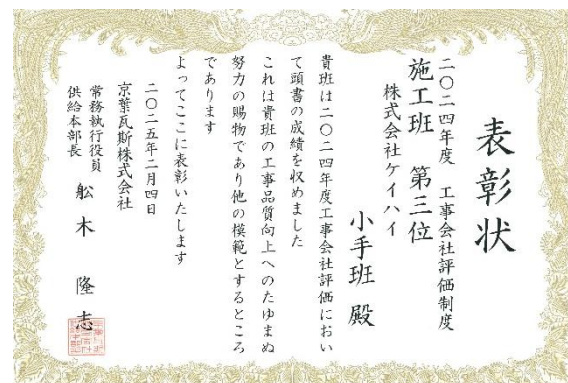 表彰状
二〇二四年度 工事会社評価制度
施工班 第三位
株式会社ケイハイ
小手班 殿
貴班は二〇二四年度工事会社評価におい
て頭書の成績を収めました
これは貴班の工事品質向上へのたゆまぬ
努力の賜物であり他の模範とするところ
であります
よってここに表彰いたします
二〇二五年二月四日
京葉瓦斯株式会社
常務執行役員
供給本部長
舩木 隆志